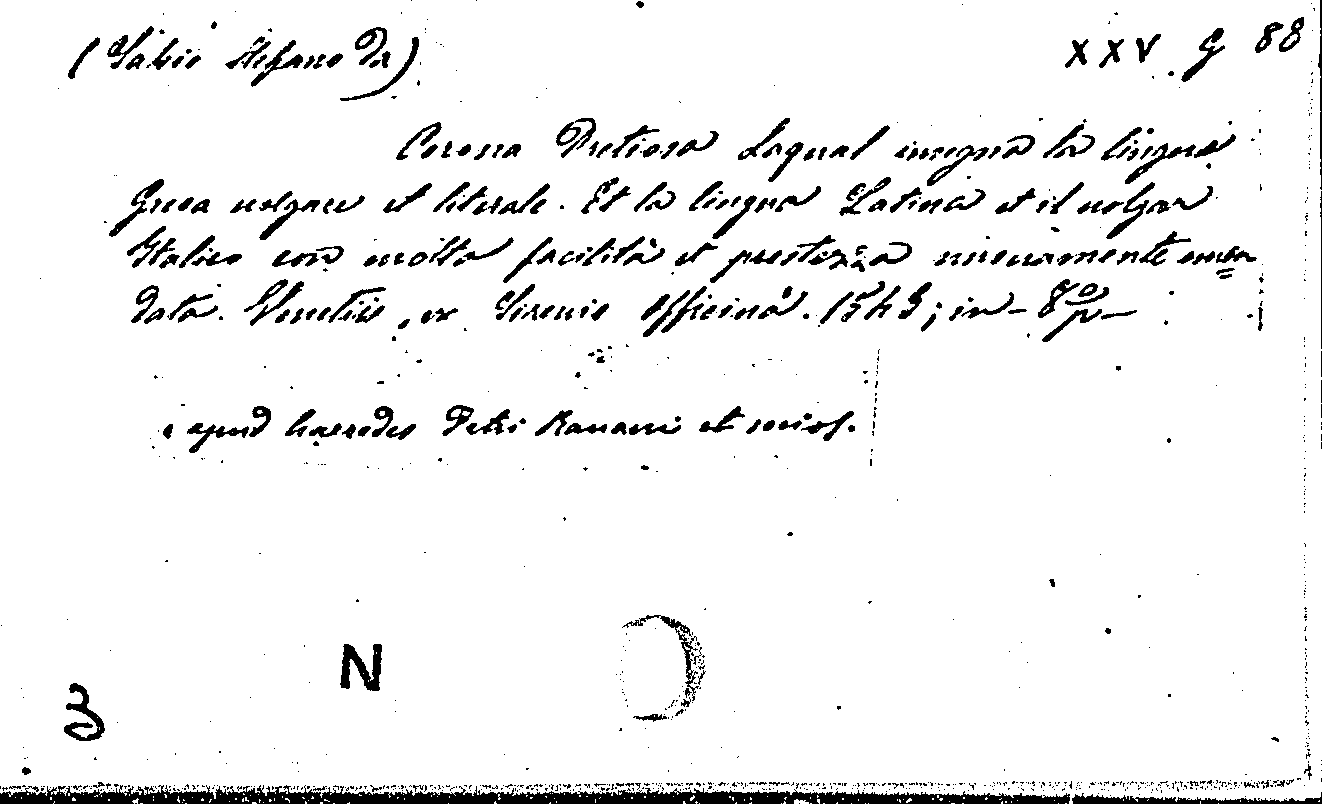 (Sabio Stefano Da) XXV G 88
Corona Pretiosa Laqual insegna la lingua
Greca volgare et literale. Et la lingua Latina et il volgar
Italico con molta facilità et prestezza nuovamente emen=
data. Venetiis, ex Sirenis officina. 1543; in-8º p-
, apud haeredes Petri Ravani et socios.
N
3